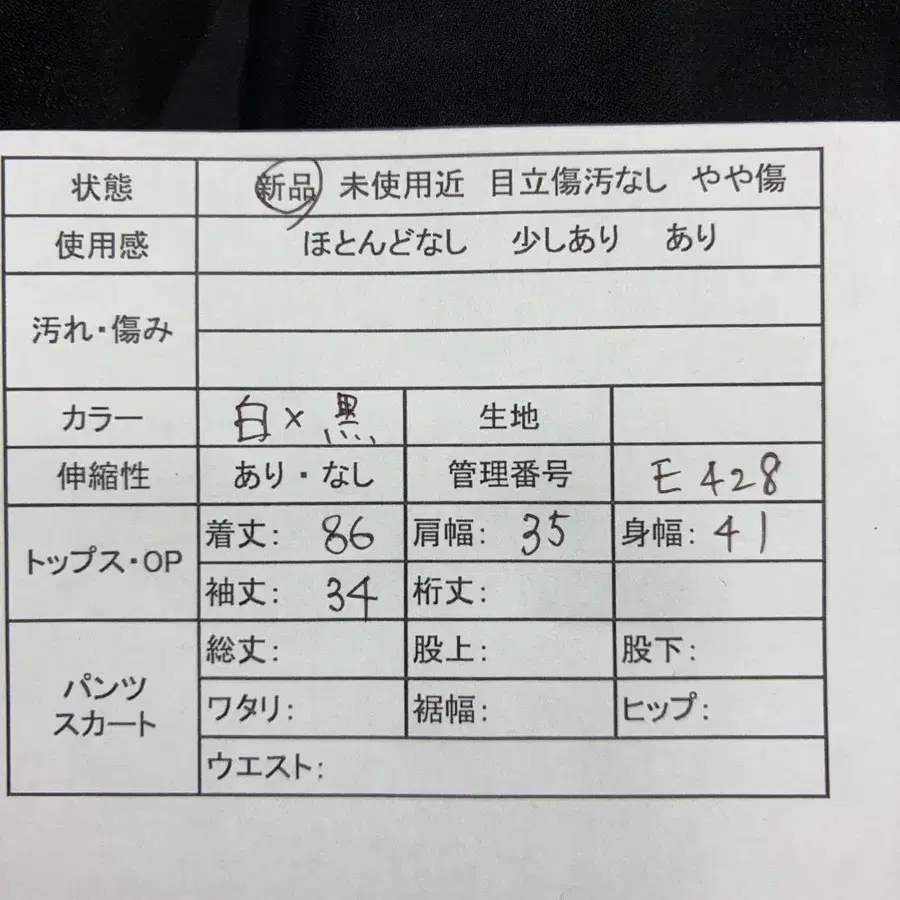 状態 新品 未使用近 目立傷汚なし やや傷
使用感 ほとんどなし 少しあり あり
汚れ・傷み
カラー 白×黒 生地
伸縮性 あり・なし 管理番号 E428
トップス・OP
着丈: 86 肩幅: 35 身幅: 41
袖丈: 34 桁丈:
パンツ
スカート
総丈: 股上: 股下:
ワタリ: 裾幅: ヒップ:
ウエスト: